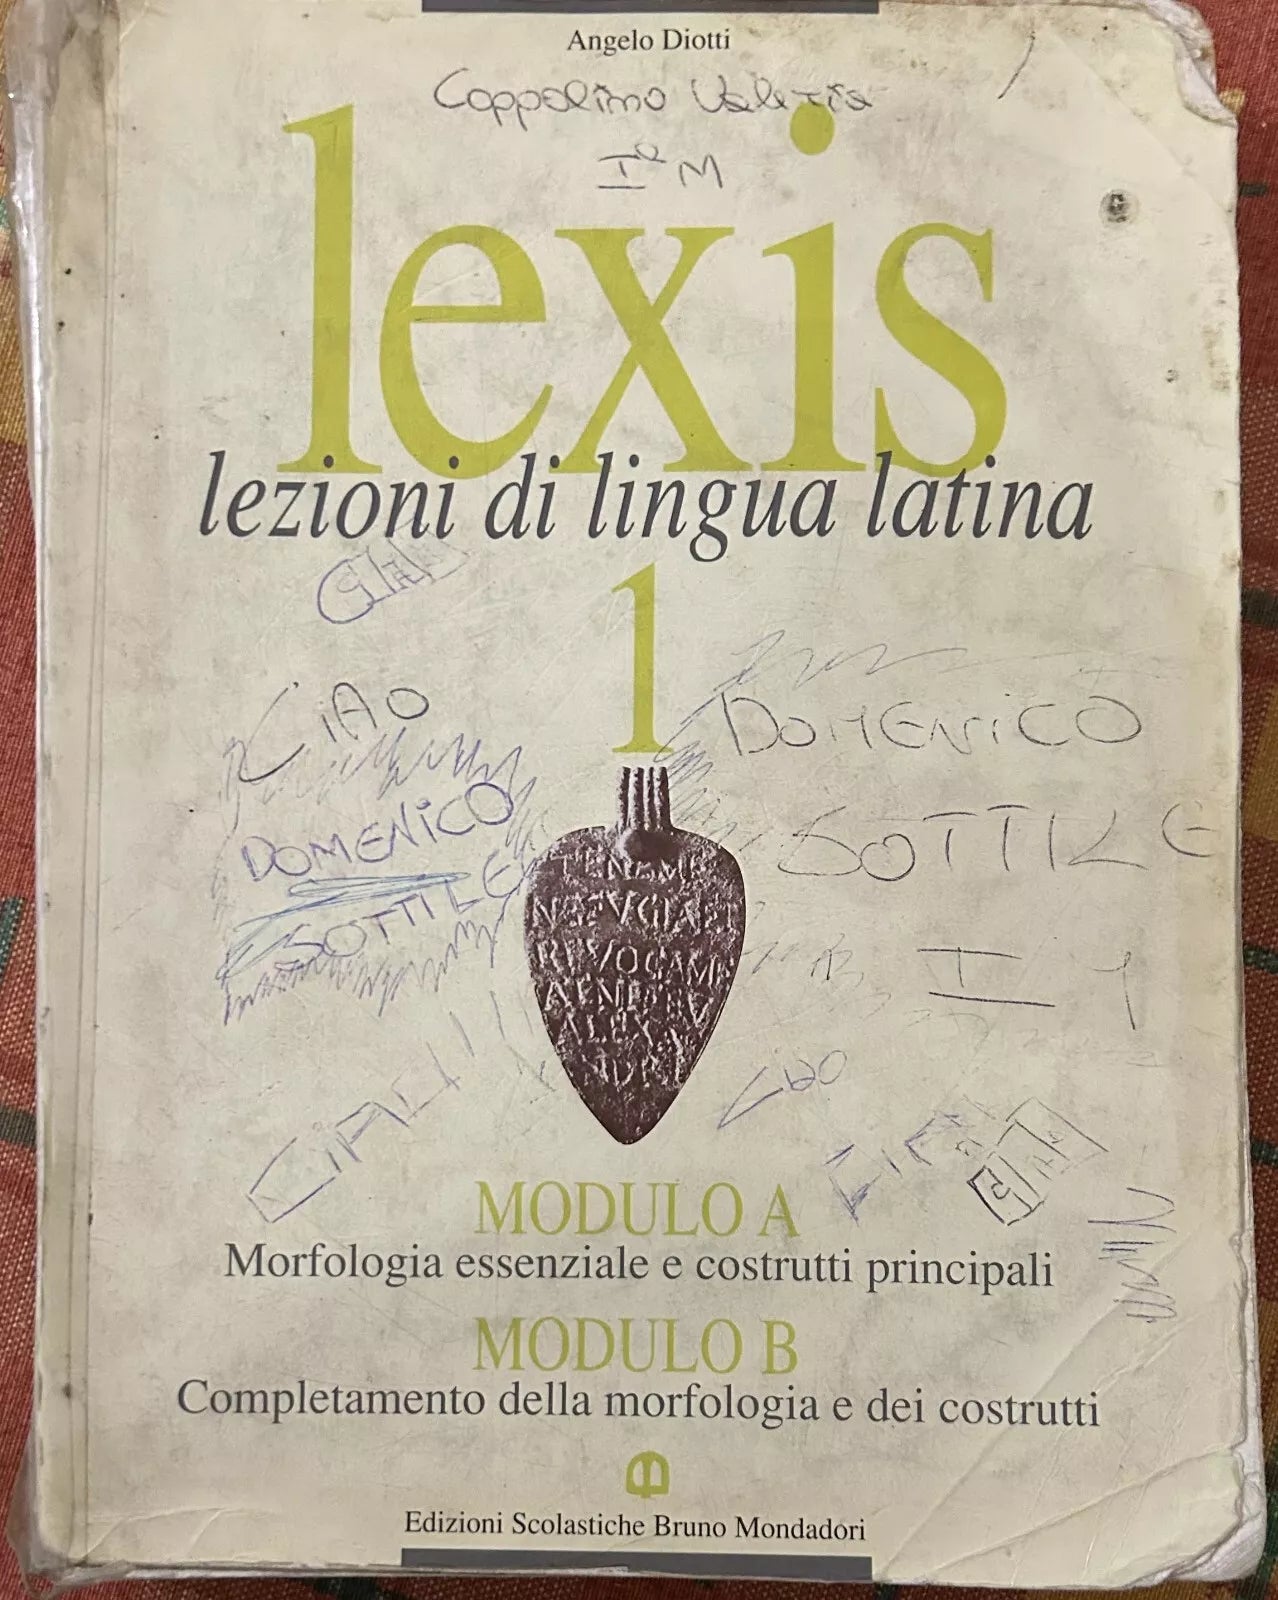 Angelo Diotti
Coppolino Valeria
Iª M
lexis
lezioni di lingua latina
1
CiAO
DOMENiCO
SOTTILE
DOMENiCO
SOTTILE
I
TENEME
NEFVGIAET
REVOCAME
ALEX
MODULO A
Morfologia essenziale e costrutti principali
MODULO B
Completamento della morfologia e dei costrutti
Edizioni Scolastiche Bruno Mondadori